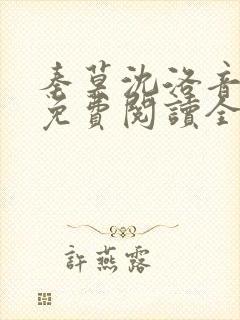 秦墓沈洛音
免費閱讀全
許燕露